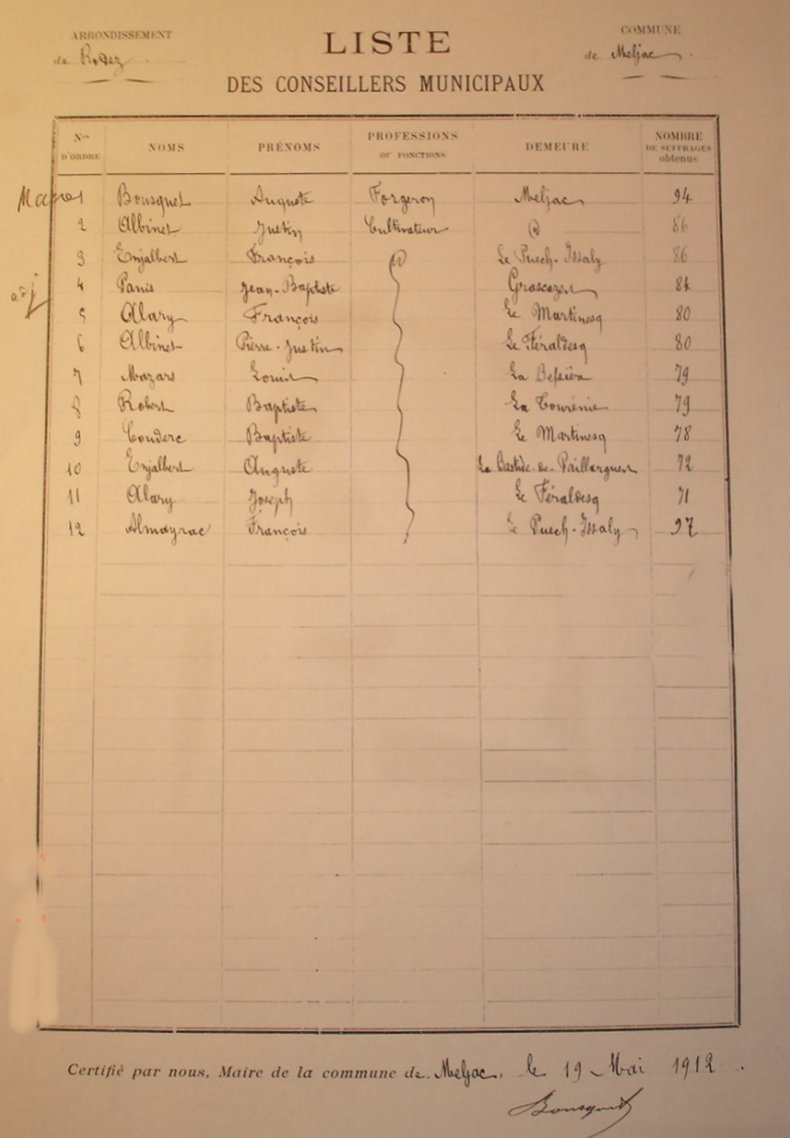 ARRONDISSEMENT
de Rodez
LISTE
DES CONSEILLERS MUNICIPAUX
COMMUNE
de Meljac
Nos D'ORDRE NOMS PRÉNOMS PROFESSIONS OU FONCTIONS DEMEURE NOMBRE DE SUFFRAGES obtenus
1 Bousquet Auguste Forgeron Meljac 94
2 Albinet Justin Cultivateur 86
3 Enjalbert François Le Puech-Issaly 86
adj 4 Panis Jean-Baptiste 84
5 Alary François Le Martinesq 80
6 Albinet Pierre-Justin Le Féraldesq 80
7 Mazars Louis La Bessière 79
8 Robert Baptiste La Tourénie 79
9 Couderc Baptiste Le Martinesq 78
10 Enjalbert Auguste La Bastide-de-Paillargues 72
11 Alary Joseph Le Féraldesq 71
12 Almayrac François Le Puech-Issaly 97
Certifié par nous, Maire de la commune de Meljac, le 19 Mai 1912.
Bousquet